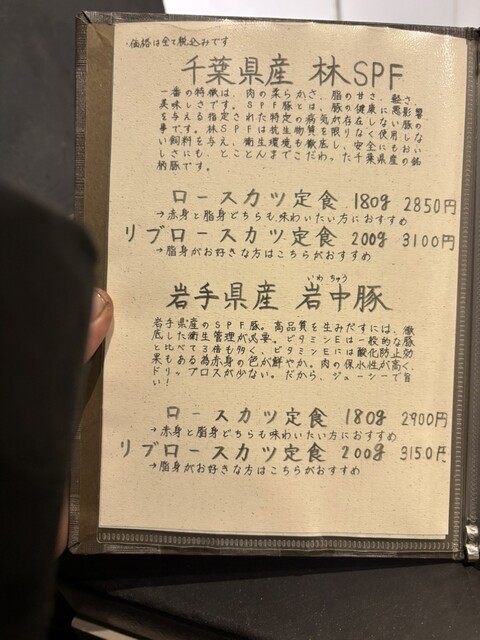 ・価格は全て税込みです
千葉県産 林SPF
一番の特徴は、肉の柔らかさ、脂の甘さ、軽さ、
美味しさです。SPF豚とは、豚の健康に悪影響
を与える指定された特定の病気が存在しない豚の
事です。林SPFは抗生物質を限りなく使用しな
い飼料を与え、衛生環境も徹底し、安全にもおい
しさにも、とことんまでこだわった千葉県産の銘
柄豚です。
ロースカツ定食 180g 2850円
→赤身と脂身どちらも味わいたい方におすすめ
リブロースカツ定食 200g 3100円
→脂身がお好きな方はこちらがおすすめ
いわちゅう
岩手県産 岩中豚
岩手県産のSPF豚。高品質を生みだすには、徹
底した衛生管理が必要。ビタミンEは一般的な豚
と比べて3倍も多く、ビタミンEには酸化防止効
果もある為赤身の色が鮮やか。肉の保水性が高く、
ドリップロスが少ない。だから、ジューシーで旨
い!
ロースカツ定食 180g 2900円
→赤身と脂身どちらも味わいたい方におすすめ
リブロースカツ定食 200g 3150円
→脂身がお好きな方はこちらがおすすめ